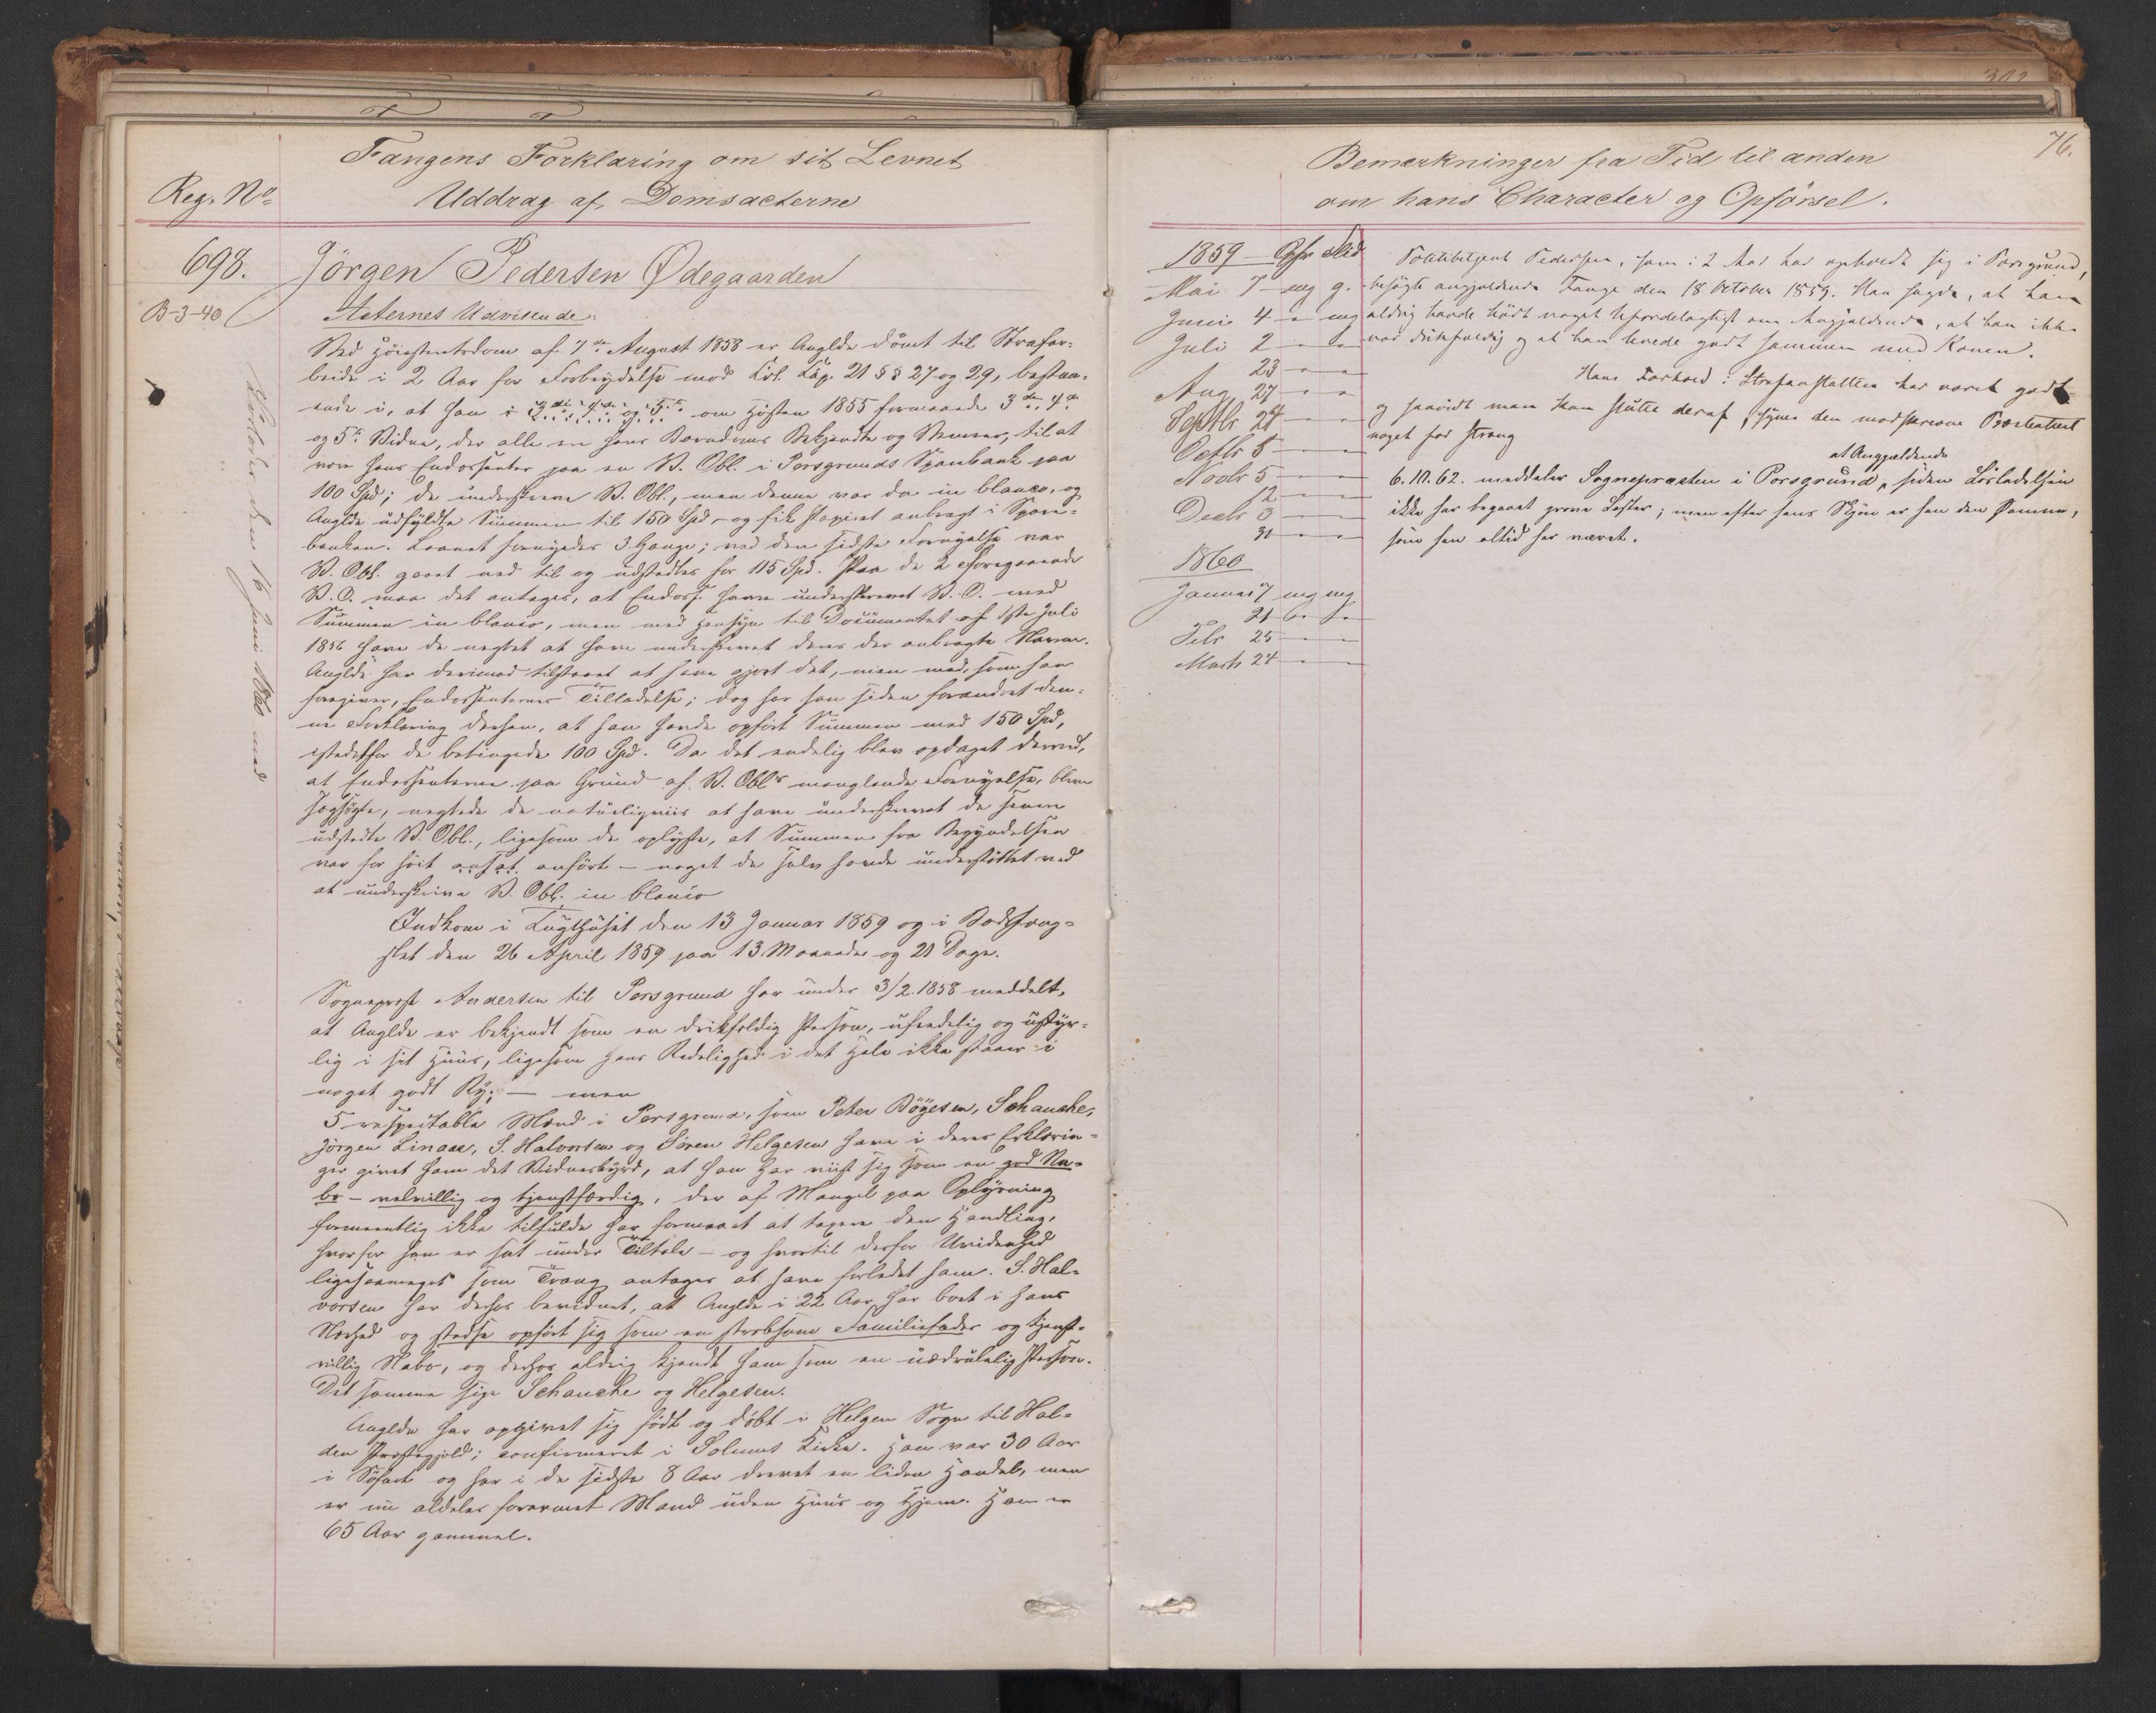 Fangens Forklaring om sit Levnet
Reg. No
Uddrag af Domsacterne
698.
Jörgen Pedersen Ødegaarden
B-3-40
Acternes Udvisende:
Ved Höiesteretsdom af 7de August 1858 er Anglde dömt til Strafar-
beide i 2 Aar for Forbrydelse mod Crl. Cap. 21 §§ 27 og 29, bestaa-
ende i, at han i 3die, 4de og 5te om Hösten 1855 formaaede 3de, 4de
og 5te Vidne, der alle ere hans Barndoms Bekjendte og Venner, til at
være hans Endossenter paa en V. Obl. i Porsgrunds Sparebank paa
100 Spd; de underskreve V. Obl., men denne var da in blanco, og
Anglde udfyldte Summen til 150 Spd, og fik Papiret anbragt i Spare-
banken. Laanet fornyedes 3 Gange; ved den sidste Fornyelse var
V. Obl. gaaet ned til og udstedtes for 115 Spd. Paa de 2 Foregaaende
V. O. maa det antages, at Endoss. have underskrevet V. O. med
Summen in blanco, men med Hensyn til Documentet af 1ste Juli
1856 have de negtet at have underskrevet deres der anbragte Navne.
Anglde har derimod tilstaaet at have gjort det, men med, som han
foregiver, Endossenternes Tilladelse; dog har han siden forandret den-
ne Forklaring derhen, at han havde opfört Summen med 150 Spd,
istedetfor de betingede 100 Spd. Da det endelig blev opdaget derved,
at Endossenterne paa Grund af V. Obls manglende Fornyelse, bleve
sagsögte, negtede de naturligviis at have underskrevet de senere
udstedte V. Obl., ligesom de oplyste, at Summen fra Begyndelsen
var for höit ansat anfört – noget de selv havde understöttet ved
at underskrive V. Obl. in blanco
Indkom i Tugthuset den 13 Januar 1859 og i Bodsfæng-
slet den 26 April 1859 paa 13 Maaneder og 20 Dage.
Sogneprest Andersen til Porsgrund har under 3/2.1858 meddelt,
at Anglde er bekjendt som en drikfældig Person, ufredelig og ustyr-
lig i sit Huus, ligesom hans Redelighed i det Hele ikke staaer i
noget godt Ry; – men
5 respectable Mænd i Porsgrund, som Peter Böyesen, Schanche,
Jörgen Linaae, S. Halvorsen og Sören Helgesen have i deres Erklærin-
ger givet ham det Vidnesbyrd, at han har viist sig som en god Na-
bo – velvillig og tjenstfærdig, der af Mangel paa Oplysning
formeentlig ikke tilfulde har formaaet at taxere den Handling,
hvorfor han er sat under Tiltale – og hvortil derfor Uvidenhed
ligesaameget som Trang antages at have forledet ham. S. Hal-
vorsen har derhos bevidnet, at Anglde i 22 Aar har boet i hans
Nærhed og stedse opfört sig som en stræbsom Familiefader og tjenst-
villig Nabo, og derhos aldrig kjendt ham som en uædruelig Person.
Det samme sige Schanche og Helgesen.
Anglde har opgivet sig födt og döbt i Helgen Sogn til Hol-
den Præstegjeld; confirmeret i Solums Kirke. Han var 30 Aar
i Söfart og har i de sidste 8 Aar drevet en liden Handel, men
er nu aldeles forarmet Mand uden Huus og Hjem. Han er
65 Aar gammel.
Löslades den 16 Juni 1860 med
76.
Bemærkninger fra Tid til anden
om hans Character og Opförsel.
1859 – Opfr Flid
Mai 7 – mg g.
Juni 4 – – mg
Juli 2 – –
23 – –
Aug. 27 – –
Septbr 24 – –
Octbr 8 – –
Novbr 5 – –
12 – –
Decbr 3 – –
31 – –
1860
Januar 7 mg mg
21 – –
Febr 25 – –
Marts 24 – –
Politibetjent Pedersen, som i 2 Aar har opholdt sig i Porsgrund,
besögte angjældende Fange den 18 October 1859. Han sagde, at han
aldrig havde hördt noget ufordelagtigt om Angjældende, at han ikke
var drikfældig og at han levede godt sammen med Konen.
Hans Forhold i Strafanstalten har været godt
og saavidt man kan slutte deraf, synes den modstaaende Præsteattest
noget for streng
6.10.62. meddeler Sognepræsten i Porsgrund, at Angjældende siden Lösladelsen
ikke har begaaet grove Laster; men efter hans Skjön er han den Samme,
som han altid har været.